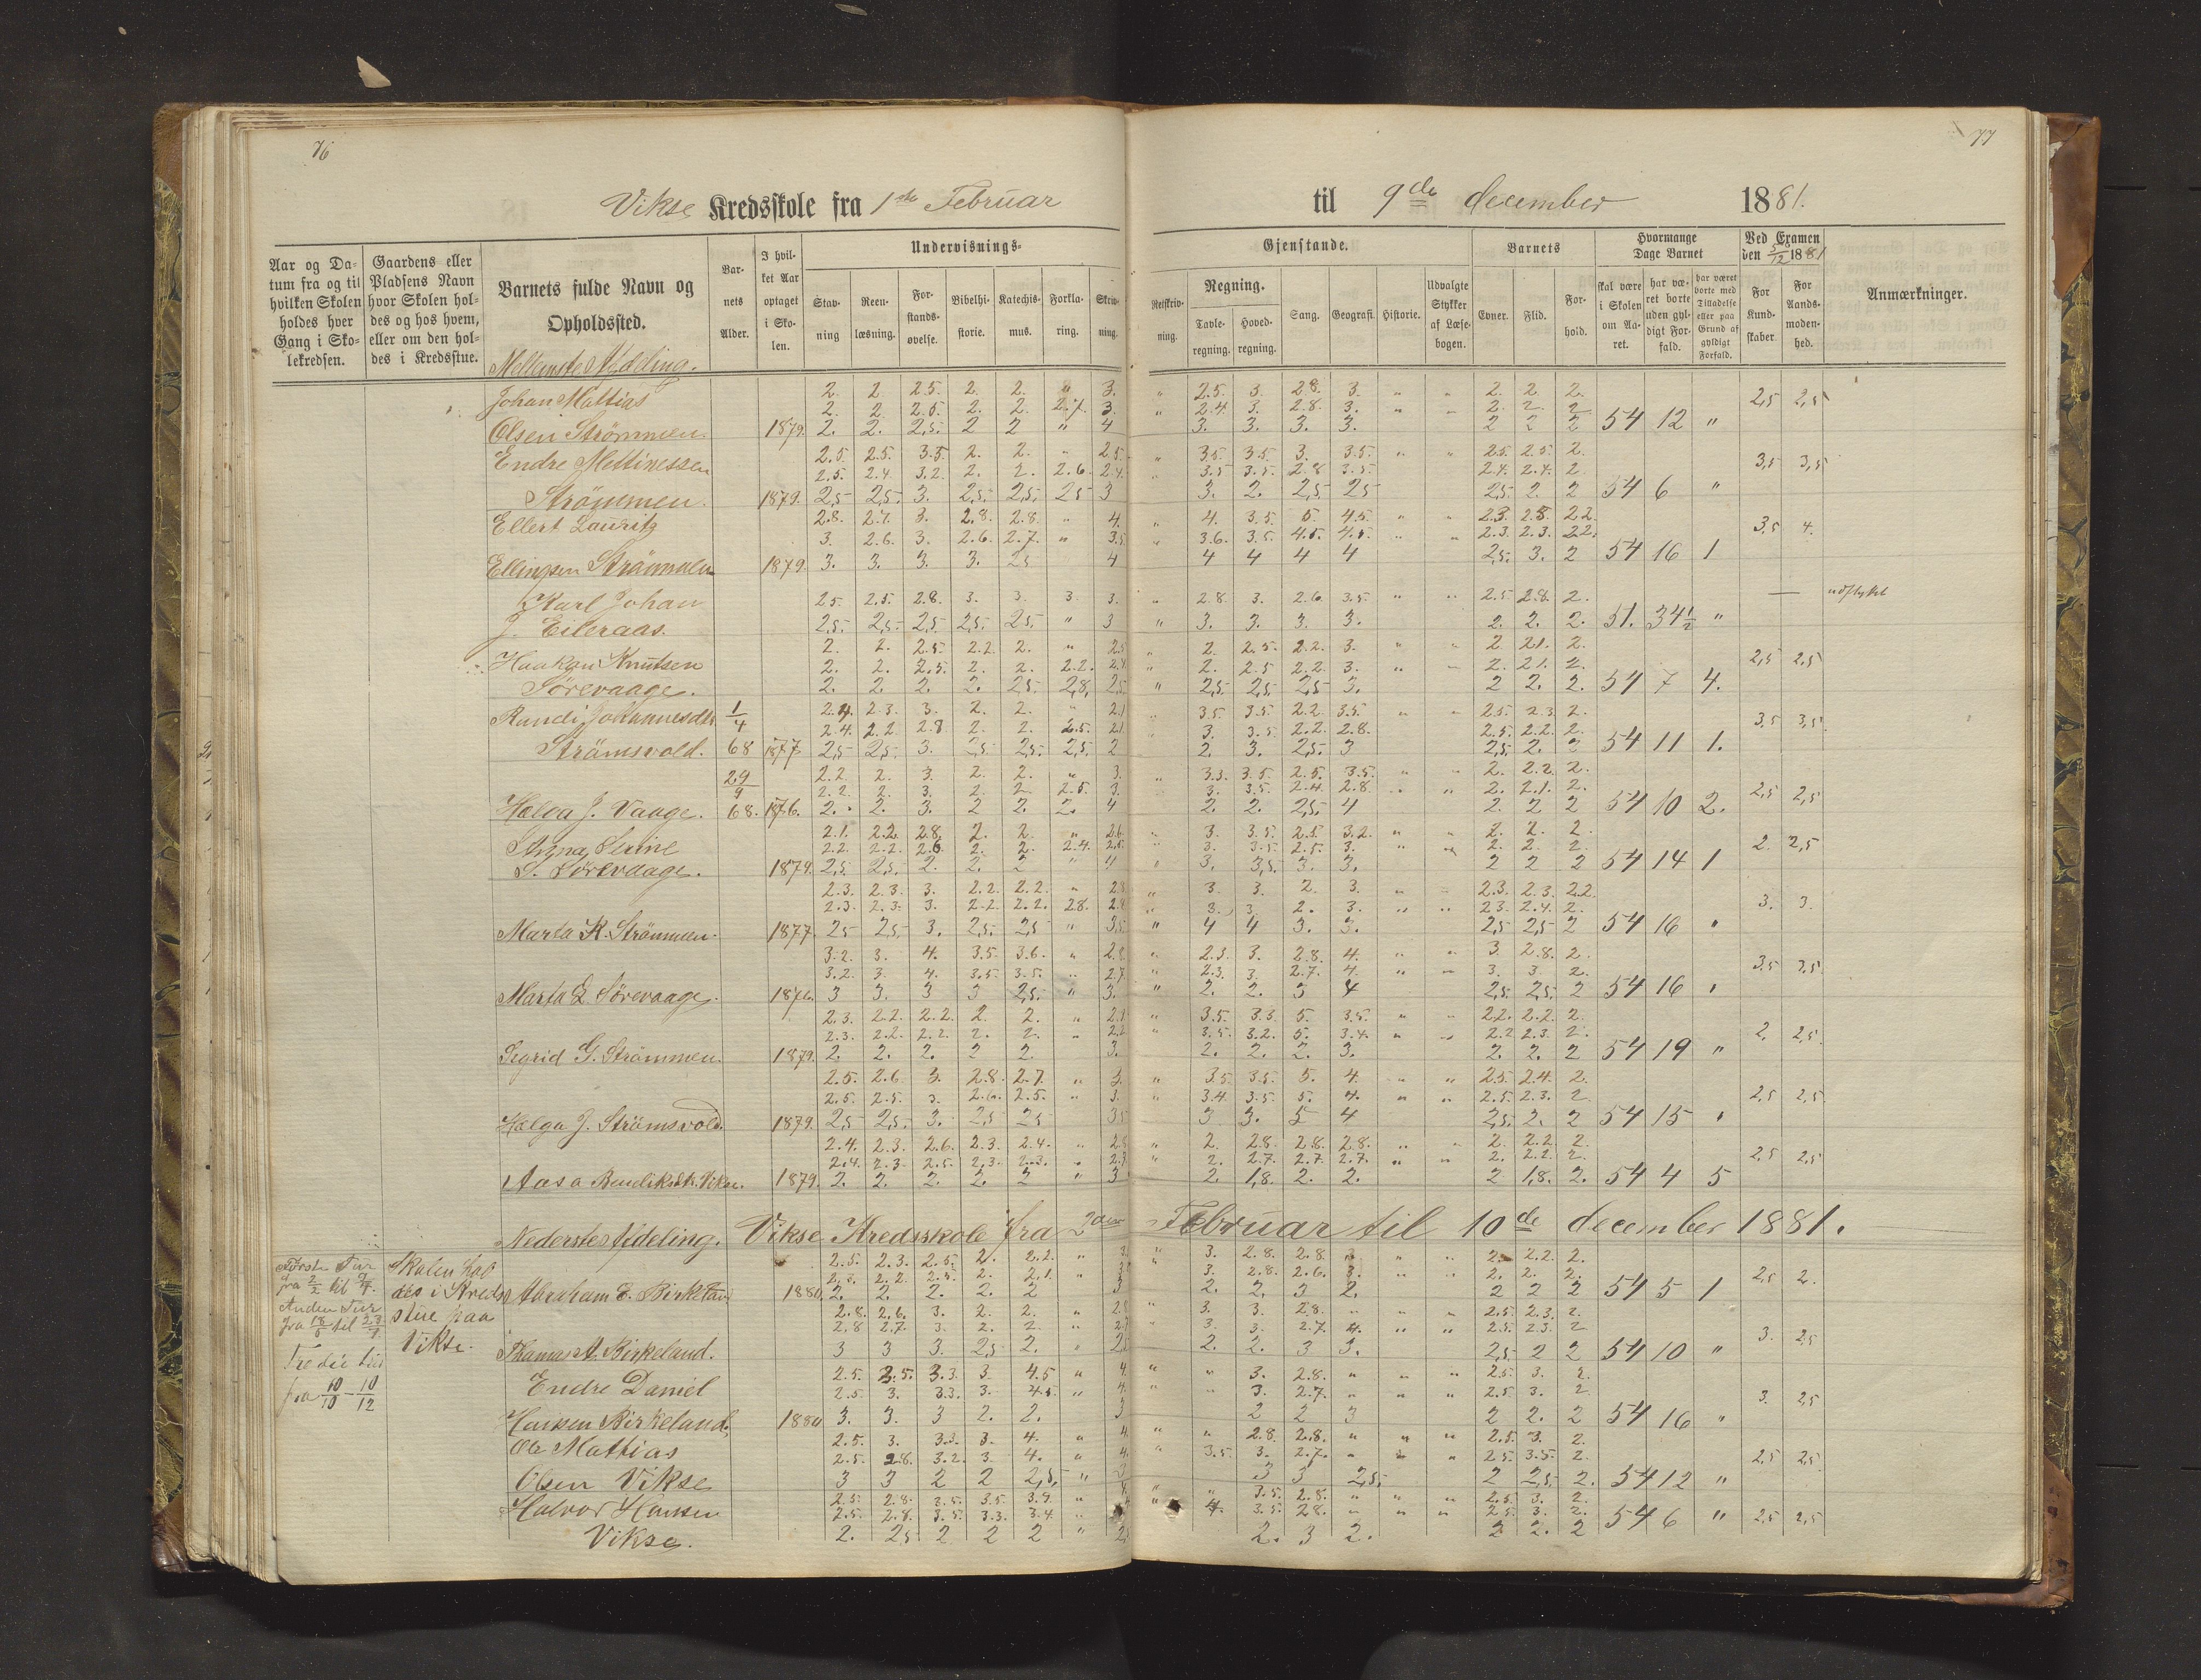 76
77
Vikse Kredsskole fra 1ste Februar til 9de december 1881.
Aar og Datum fra og til hvilken Skolen holdes hver Gang i Skolekredsen.
Gaardens eller Pladsens Navn hvor Skolen holdes og hos hvem, eller om den holdes i Kredsstue.
Barnets fulde Navn og Opholdssted.
Barnets Alder.
I hvilket Aar optaget i Skolen.
Undervisnings-
Stavning
Reenlæsning.
Forstandsøvelse.
Bibelhistorie.
Katechismus.
Forklaring.
Skrivning.
Gjenstande.
Retskrivning.
Regning.
Tavleregning.
Hovedregning.
Sang.
Geografi.
Historie.
Udvalgte Stykker af Læsebogen.
Barnets
Evner.
Flid.
Forhold.
Hvormange Dage Barnet
skal være i Skolen om Aaret.
har været borte uden gyldigt Forfald.
har været borte med Tilladelse eller paa Grund af gyldigt Forfald.
Ved Examen den 5/12 1881
For Kundskaber
For Aandsmodenhed.
Anmærkninger.
Mellemste Afdeling.
2. 2. 2.5. 2. 2. " 3. " 2.5. 3. 2.8. 3. " " 2. 2. 2.
Johan Mattias 2. 2. 2.5. 2. 2. 2.7. 3. " 2.4. 3. 2.8. 3. " " 2. 2. 2 2,5 2,5
Olsen Strömmen. 1879. 2. 2. 2,5. 2 2 " 4 3. 3. 3. 3. 2 2 2 54 12 "
2.5. 2.5. 3.5 2. 2. " 2.5. " 3.5. 3.5. 3. 3.5. " " 2.5. 2.5. 2.
Endre Mettinessen 2.5. 2.4 3.2. 2. 2. 2.6. 2.4. " 3.5 3.5. 2.8 3.5. 2.4. 2.4. 2 3,5 3,5
Strömmen. 1879. 2,5 2,5. 3. 2,5. 2,5. 2,5 3 3. 2. 2,5 2,5 2,5. 2. 2 54 6 "
Ellert Lauritz 2.8. 2.7. 3. 2.8. 2.8. " 4. " 4. 3.5. 5. 4.5. " " 2.3. 2.8. 2.2.
3. 2.6. 3. 2.6. 2.7. " 3.5 " 3.6. 3.5. 4.5. 4.5. " " 2.3. 2.3. 2.2. 3,5 4.
Ellingsen Strömmen 1879. 3. 3. 3. 3. 2,5 4 4 4 4 4 2,5. 3. 2 54 16 1
Karl Johan 2.5 2.5. 2.8. 3. 3. 3. 3. " 2.8. 3. 2.6. 3.5. " " 2.5 2.8. 2. —
J. Eileraas. 2,5. 2,5. 2,5 2,5. 2,5. " 3 " 3. 3. 3. 3. 2. 2. 2. 51. 34½ "
2. 2. 2.5 2.2. 2. " 2.5 " 2. 2.5. 2.2. 3. " " 2. 2.1. 2.
Haakon Knutsen 2. 2. 2.5. 2. 2. 2.2. 2.4. " 2. 2.5 2.2. 3. " " 2. 2.1. 2. 2,5 2,5
Sörevaage. 2. 2. 2. 2. 2,5. 2,8. 2,5 " 2,5. 2,5. 2,5 3. 2 2. 2. 54 7 4.
Randi Johannesdtr 1/4 2.4. 2.3. 3. 2. 2. " 2.1 " 3.5. 3.5. 2.2. 3.5. " " 2.5. 2.3. 2.
2.4. 2.2. 2.8 2. 2. 2.5. 2.1. 3. 3.5. 2.2. 2.8. 2.5. 2.2. 2. 3,5 3,5
Strömsvold. 68 1877 2,5 2,5. 3. 2,5. 2,5. 2,5. 2 2. 3. 2,5. 3 2,5. 2. 2 54 11 1.
29/9 2.2. 2. 3. 2. 2. " 3. " 3.3. 3.5. 2.5. 3.5. " " 2. 2.2. 2.
2.2. 2. 3. 2. 2. 2.5. 3. " 3. 3.5. 2.4. 2.8. " " 2. 2.1. 2. 2,5 2,5
Helga J. Vaage. 68. 1876. 2. 2. 3. 2 2. 2. 4 2. 2. 2,5. 4 2. 2 2 54 10 2.
2.1. 2.2. 2.8. 2. 2. " 2.6. " 3. 3.5. 2.5. 3.2. " " 2. 2. 2.
Anna Serine 2.2. 2.2. 2.6. 2. 2. 2.4. 2.5. " 3. 3.5. 2.5. 3. " " 2. 2. 2. 2. 2,5
S. Sörevaage. 1879. 2,5 2,5. 2. 2. 2 " 4 " 3. 3,5. 3. 3. 2 2 2 54 14 1
2.3. 2.3. 3. 2.2. 2.2. " 2.8. " 3. 3. 2. 3. " " 2.3. 2.3. 2.2.
2.3. 2.3. 3. 2.2. 2.2. 2.8. 2.8. " 3. 3. 2. 3. " " 2.3. 2.4. 2. 3. 3.
Marta K. Strömmen. 1877. 2,5 2,5. 3. 2,5. 2,5 " 3,5 " 4 4 3. 3. 2,5 2,5 2 54 16 "
3.2. 3. 4. 3.5. 3.6. " 2.8. " 2.3. 3. 2.8. 4. " " 3 2.8. 2.
3.2. 3. 4. 3.5. 3.5. " 2.7. " 2.3. 3. 2.7. 4. " " 3. 3. 2. 3,5 3,5
Marta E. Sörevaage. 1876. 3 3. 3 3 2,5. " 3. " 2. 2. 3 4 2,5. 2,5. 2 54 16 "
2.3. 2.2. 2.2. 2. 2. " 2.1 " 3.5. 3.3. 5. 3.5. " " 2.2. 2.2. 2.
2.3. 2.2. 2.2. 2. 2. " 2.2. " 3.5. 3.2. 5. 3.4. " " 2.2 2.3. 2. 2. 2,5
Segrid G. Strömmen. 1879. 2. 2. 2. 2 2. 3. 2. 2. 2. 3. 2. 2. 2 54 19 "
2.5. 2.6. 3. 2.8. 2.7. " 3. " 3.5. 3.5. 5. 4. " " 2.5. 2.4. 2.
2.5. 2.5. 3. 2.6. 2.5. " 3. " 3.4. 3.5. 5. 4. " " 2.5. 2.3. 2. 2,5 2,5
Helga J. Strömsvold. 1879. 2,5 2,5. 3. 2,5 2,5 3,5 3 3. 5 4 2,5. 2. 2 54 15 "
2.4. 2.3. 2.6. 2.3. 2.4. " 2.8 " 2. 2.8. 2.8. 2.8. " " 2. 2.2. 2.
2.4. 2.3. 2.5. 2.3. 2.3. " 2.7 " 2. 2.7. 2.7. 2.7. " " 2. 2.2. 2. 2,5 2,5
Aasa Vikse. 1879. 2. 2. 2. 2. 2 " 3 2. 1,8. 2. 2. 2 1,8. 2. 54 4 5
Nederste Afdeling. Vikse Kredsskole fra 2den Februar til 10de december 1881.
Første Tur fra 2/2 til
Anden Tur fra 18/5 til
Tredie tur fra 10/10 – 10/12
Skolen holdes i Kredsstue paa Vikse.
2.5. 2.3. 2.5. 2. 2.2. " 3. " 3. 2.8. 2.8. 3 " " 2. 2.2. 2.
2.5. 2.2. 2.5. 2. 2.1. " " 3. 2.8. 2.6. 3. " " 2. 2. 2. 2,5 2.
Abraham E. Birkeland 1880. 2. 2. 2. 2. 2 3 2. 2. 3 2. 2 2 2 54 5 1
2.8. 2.6. 3. 2. 2. " 2.8 " 3. 3. 2.8. " " " 2.5. 2.3. 2.
2.8 2.7. 3. 2. 2. " 2.7 " 3. 3. 2.7. 4. " " 2.5. 2.3. 2 3. 2,5
Thomas A. Birkeland. 3 3 3. 2,5 2. " 2,5 2. 2. 3 3. 2,5 2 2 54 10 "
2.5. 3.5. 3.3. 3. 4.5 " 4. " " 3. 2.8. " " " 2.5. 3. 2.
Endre Daniel 2.5. 3. 3.3. 3. 4.5. " 4. " " 3. 2.7. " " " 2.5. 3. 2 3. 2,5
Hansen Birkeland. 1880 3. 3. 3 2. 2. 3 2 2 3 2 2. 2 54 16 "
2.5. 3. 3.3. 3. 4. " 4. " " 2.8. 2.8. " " " 2.5. 3. 2.
Ole Mattias 2.5. 2.8. 3.2. 3 4. " 4. " 3.5. 3. 2.7. " " " 2.5 3.5. 2. 2,5 2,5
Olsen Vikse 3 3 2 2 2,5. " 3 3 3 2,5. 2 2,5. 2. 54 12 "
2.5. 2.8. 3.5. 3.5. 3.4. " 4 " " 3.5. 2.8. " " " 2.5. 3. 2.
Halvor Hansen 2.5. 2.8. 3.5. 3.3. 3.4. " " 4. 3.5. 2.8. " " " 2.5. 3. 2. 54 6 " 2,5 2,5
Vikse. 2. 2,5. 2 2 2 " 2. 2. 3 2. 2 2. 2